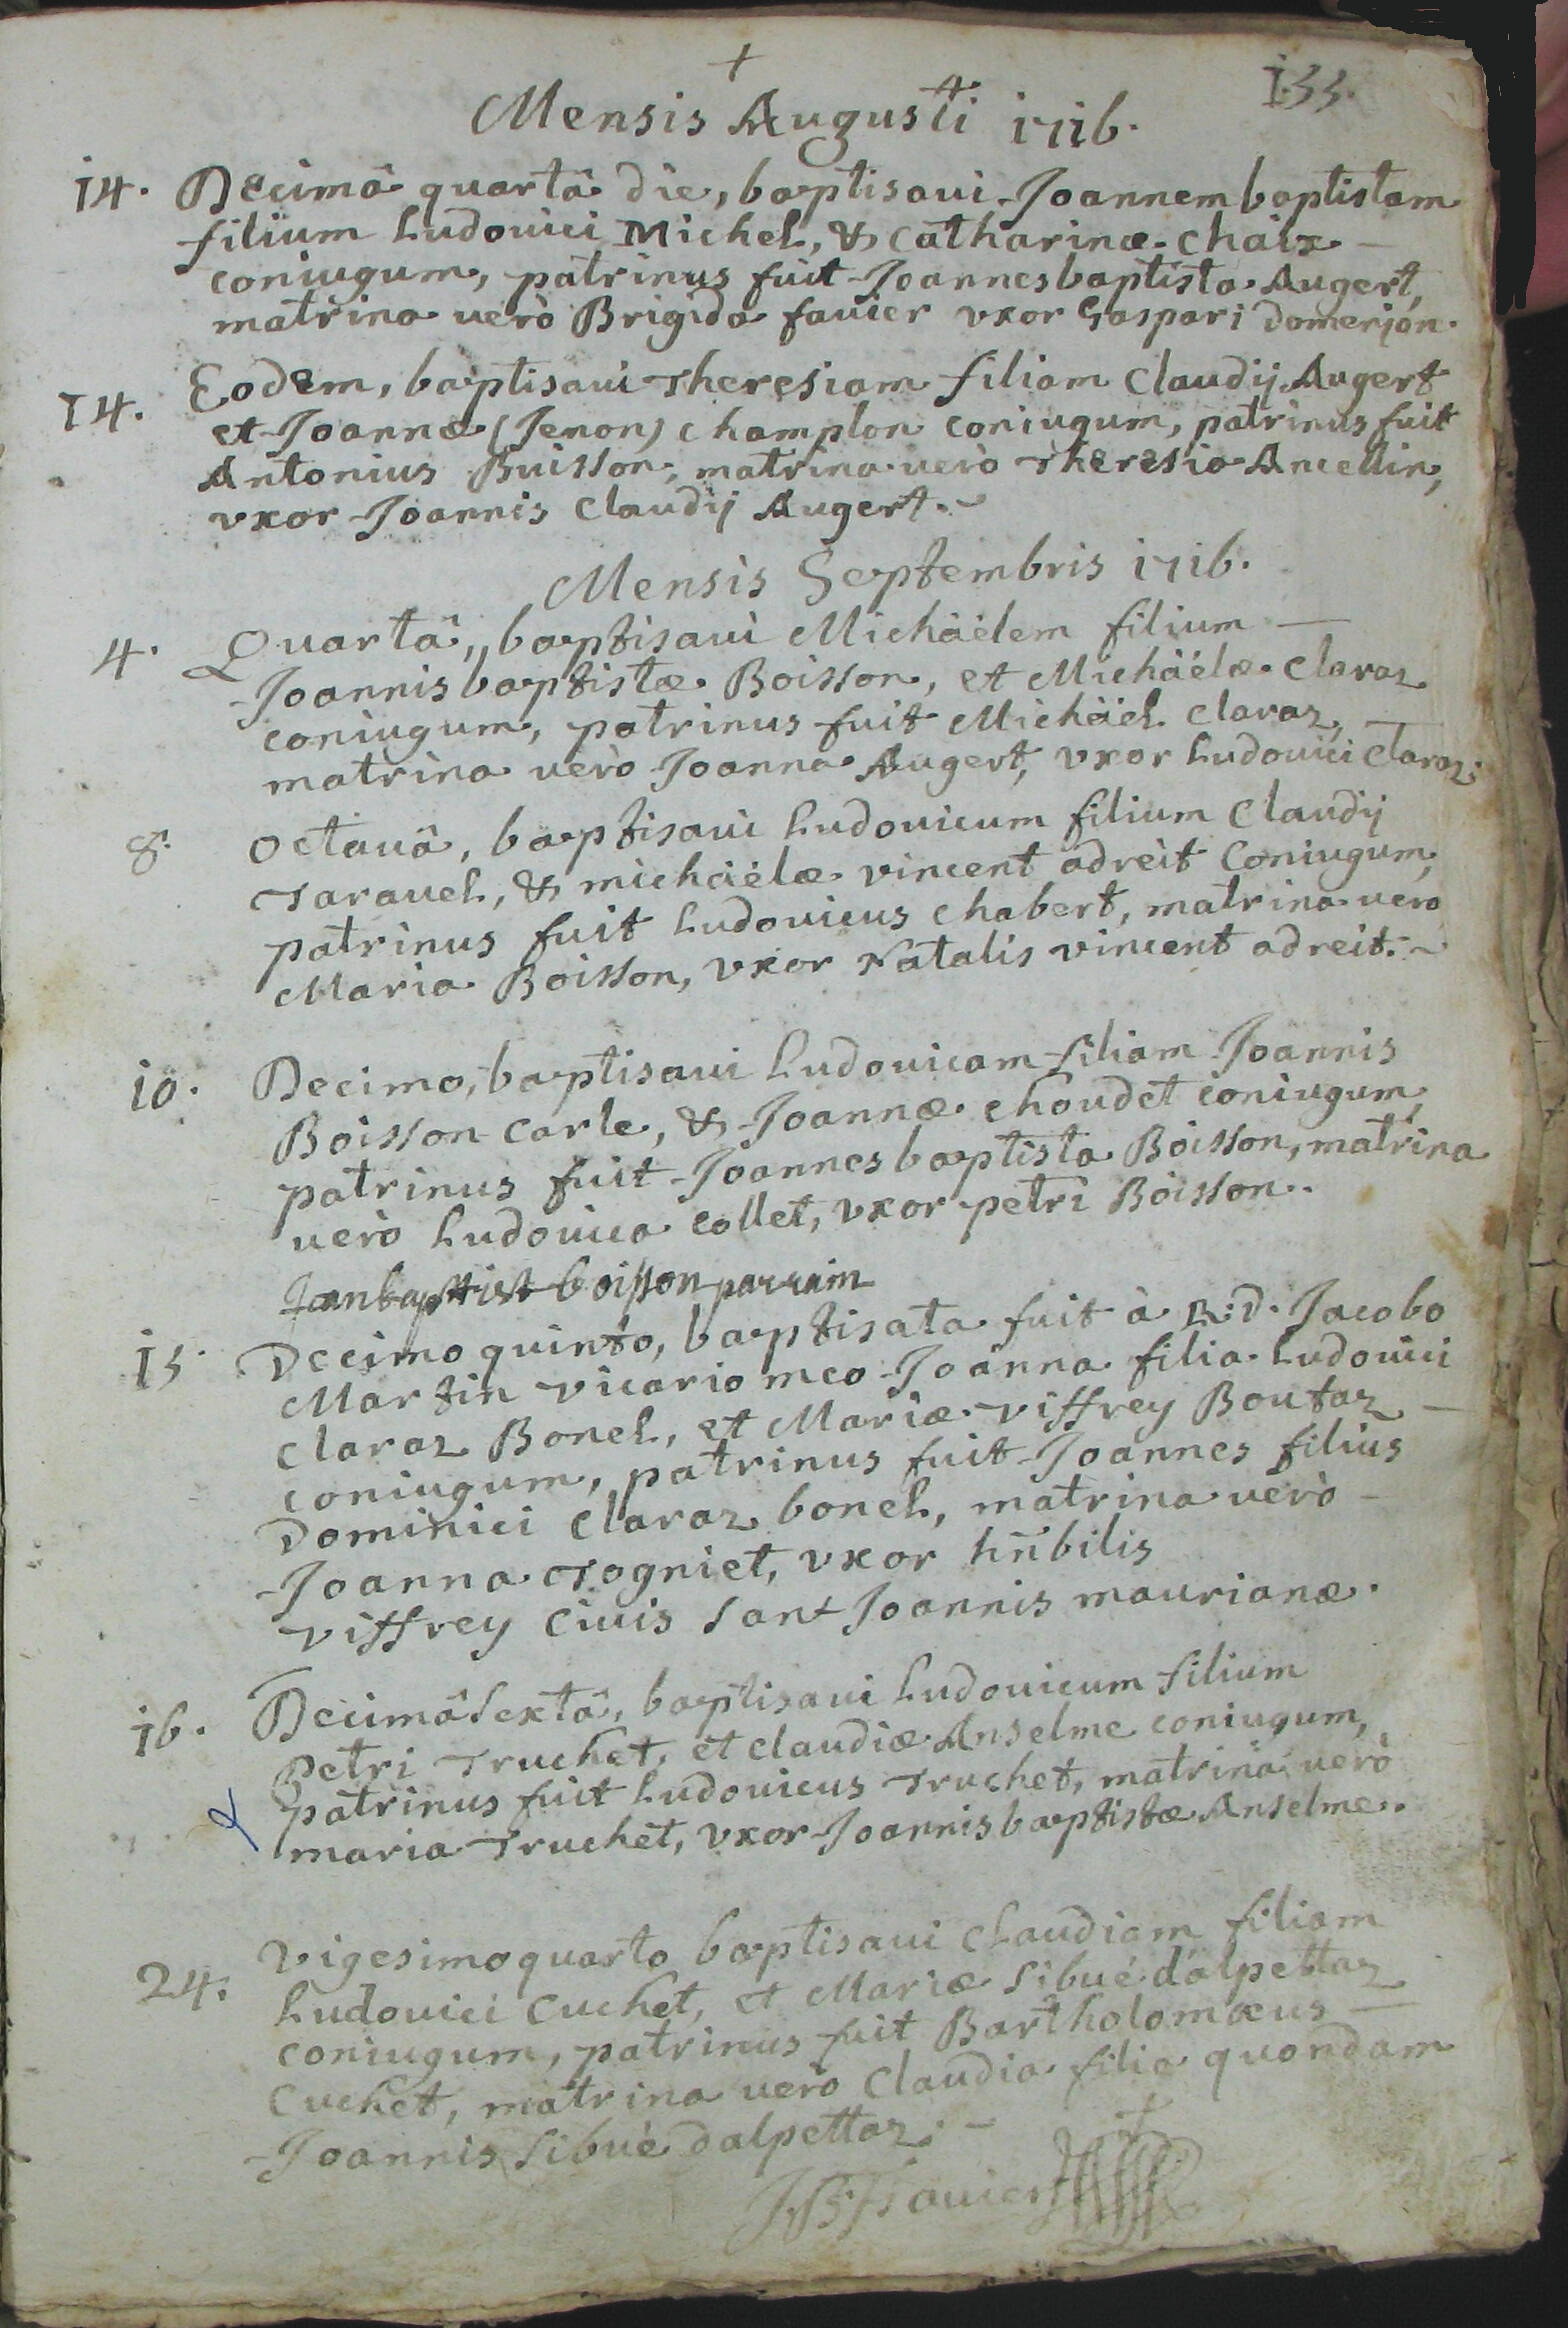 +
133.
Mensis Augusti 1716.
14. Decimâ quartâ die, baptisaui Joannem baptistam
filium Ludouici Michel, & Catharinæ Chaix
coniugum, patrinus fuit Joannes baptista Augert,
matrina uerò Brigida fauier vxor Gaspari domerjon.
14. Eodem, baptisaui Theresiam filiam Claudij Augert
et Joannæ (Jenon) champlon coniugum, patrinus fuit
Antonius Buisson, matrina uerò Theresia Ancellin,
vxor Joannis Claudij Augert.
Mensis Septembris 1716.
4. Quartâ, baptisaui Michäélem filium
Joannis baptistæ Boisson, et Michäélæ claraz
coniugum, patrinus fuit Michäel claraz,
matrina uerò Joanna Augert, vxor Ludouici claraz.
8. Octauâ, baptisaui Ludouicum filium Claudij
Tarauel, & michäélæ vincent adreit coniugum,
patrinus fuit Ludouicus chabert, matrina uero
Maria Boisson, vxor Natalis vincent adreit.
10. Decimo, baptisaui Ludouicam filiam Joannis
Boisson carle, & Joannæ choudet coniugum,
patrinus fuit Joannes baptista Boisson, matrina
uerò Ludouica collet, vxor petri Boisson.
Jeanbaptist boisson parrain
15. Decimo quinto, baptisata fuit à R.d. Jacobo
Martin vicario meo Joanna filia Ludouici
Claraz Bonel, et Mariæ viffrey Boutaz
coniugum, patrinus fuit Joannes filius
Dominici Claraz bonel, matrina uerò
Joanna Togniet, vxor hñbilis
viffrey ciuis sant Joannis maurianæ.
16. Decimâ Sextâ, baptisaui Ludouicum filium
Petri Truchet, et claudiæ Anselme coniugum,
patrinus fuit Ludouicus Truchet, matrina uerò
maria Truchet, vxor Joannis baptistæ Anselme.
24. Vigesimoquarto baptisaui Claudiam filiam
Ludouici Cuchet, et Mariæ Sibué dalpettaz
coniugum, patrinus fuit Bartholomæus
Cuchet, matrina uero Claudia filia quondam
Joannis Sibué dalpettaz.
J.B. Fauier